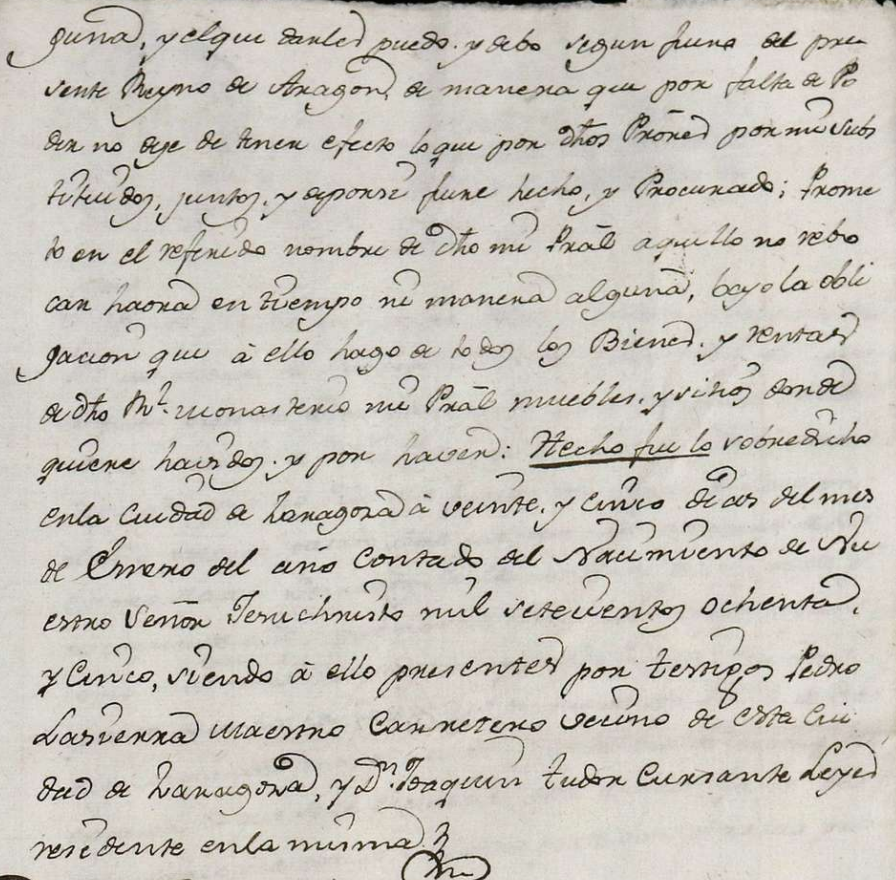 guna, y el que darles puedo, y debo segun fuero del pre
sente Reyno de Aragon, de manera que por falta de Po
der no deje de tener efecto lo que por dhos Prōres por mi subs
tituidos, juntos, y de por si fuere hecho, y Procurado; Prome
to en el referido nombre de dho mi Prāl aquello no rebo
car haora en tiempo ni manera alguna, bajo la obli
gacion que à ello hago de todos los Bienes, y rentas
de dho Rl. Monasterio mi Prāl muebles, y sitios donde
quiere havidos, y por haver: Hecho fue lo sobredicho
en la Ciudad de Zaragoza à veinte, y cinco dias del mes
de Enero del año Contado del Nacimiento de Nu
estro Señor Jesuchristo mil setecientos ochenta,
y Cinco, siendo à ello presentes por testigos Pedro
Lasierra Maestro Carretero vecino de esta Ciu
dad de Zaragoza, y Dn. Joaquin Tudor Cursante Leyes
residente en la misma